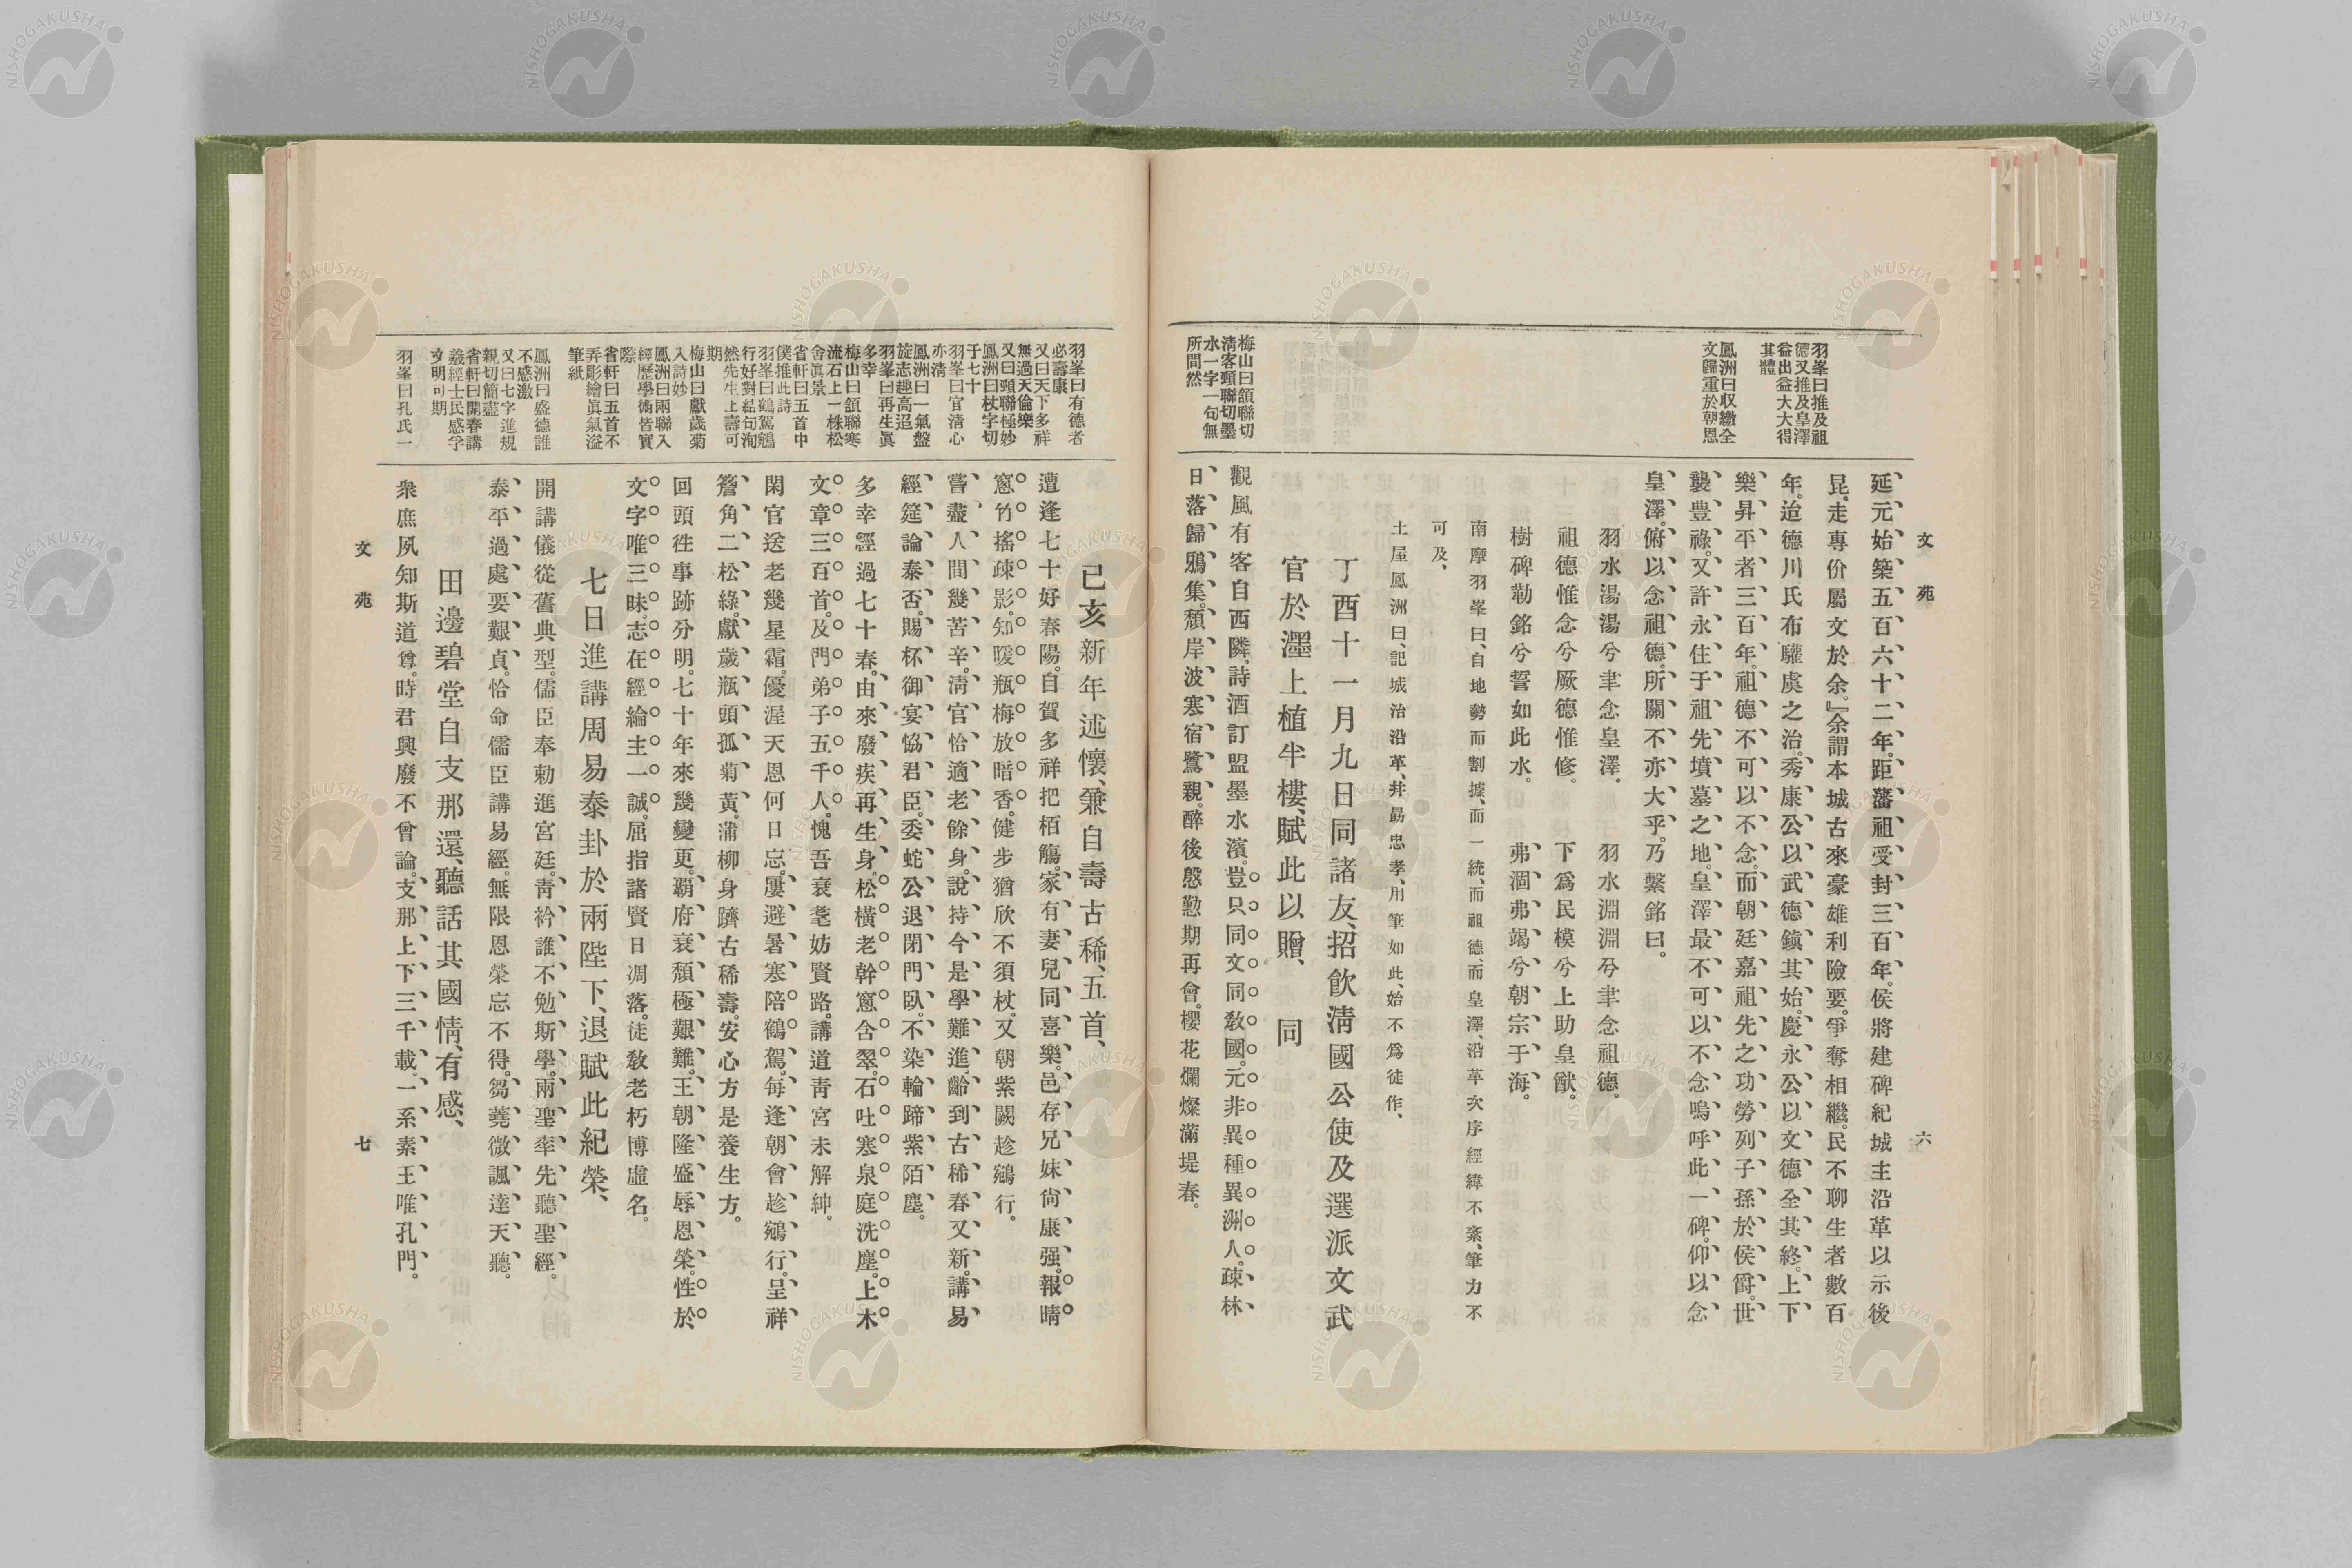 文苑
六
羽峯曰推及祖
德又推及皇澤
益出益大大得
其體
鳳洲曰収繳全
文歸重於朝恩
梅山曰頷聯切
清客頸聯切墨
水一字一句無
所間然
延元始築五百六十二年。距藩祖受封三百年。侯將建碑紀城主沿革以示後
昆。走專价屬文於余。』余謂本城古來豪雄利險要。爭奪相繼。民不聊生者數百
年。迨德川氏布驩虞之治。秀康公以武德鎭其始。慶永公以文德全其終。上下
樂昇平者三百年。祖德不可以不念。而朝廷嘉祖先之功勞列子孫於侯爵。世
襲豊祿。又許永住于祖先墳墓之地。皇澤最不可以不念。嗚呼此一碑。仰以念
皇澤。俯以念祖德。所關不亦大乎。乃繫銘曰。
羽水湯湯兮聿念皇澤。羽水淵淵兮聿念祖德。
祖德惟念兮厥德惟修。下爲民模兮上助皇猷。
樹碑勒銘兮誓如此水。弗涸弗竭兮朝宗于海。
南摩羽峯曰、自地勢而割據、而一統、而祖德、而皇澤、沿革次序經緯不紊、筆力不
可及、
土屋鳳洲曰、記城治沿革、幷勗忠孝、用筆如此、始不爲徒作、
丁酉十一月九日同諸友、招飮淸國公使及選派文武
官於濹上植半樓、賦此以贈、 同
觀風有客自西隣。詩酒訂盟墨水濱。豈只同文同敎國。元非異種異洲人。疎林
日落歸鴉集。頽岸波寒宿鷺親。醉後慇懃期再會。櫻花爛燦滿堤春。
羽峯曰有德者
必壽康
又曰天下多祥
無過天倫樂
又曰頸聯極妙
鳳洲曰杖字切
于七十
羽峯曰官淸心
亦淸
鳳洲曰一氣盤
旋志趣高迢
羽峯曰再生眞
多幸
梅山曰頷聯寒
流石上一株松
舍眞景
省軒曰五首中
僕推此詩
羽峯曰鶴駕鵷
行好對結句洵
然先生上壽可
期
梅山曰獻歲菊
入詩妙
鳳洲曰兩聯入
經歷學術皆實
際
省軒曰五首不
弄彫繪眞氣溢
筆紙
鳳洲曰盛德誰
不感激
又曰七字進規
親切簡盡
省軒曰開春講
羲經士民感孚
文明可期
羽峯曰孔氏一
己亥新年述懷、兼自壽古稀、五首、
遭逢七十好春陽。自賀多祥把栢觴。家有妻兒同喜樂。邑存兄妹尙康强。報晴
窻竹搖疎影。知暖瓶梅放暗香。健步猶欣不須杖。又朝紫闕趁鵷行。
嘗盡人間幾苦辛。淸官恰適老餘身。說持今是學難進。齡到古稀春又新。講易
經筵論泰否。賜杯御宴恊君臣。委蛇公退閉門臥。不染輪蹄紫陌塵。
多幸經過七十春。由來廢疾再生身。松橫老幹窻含翠。石吐寒泉庭洗塵。上木
文章三百首。及門弟子五千人。愧吾衰耄妨賢路。講道靑宮未解紳。
閑官送老幾星霜。優渥天恩何日忘。屢避暑寒陪鶴駕。每逢朝會趁鵷行。呈祥
簷角二松綠。獻歲瓶頭孤菊黃。蒲柳身躋古稀壽。安心方是養生方。
回頭徃事跡分明。七十年來幾變更。覇府衰頽極艱難。王朝隆盛辱恩榮。性於
文字唯三昧。志在經綸主一誠。屈指諸賢日凋落。徒敎老朽博虛名。
七日進講周易泰卦於兩陛下、退賦此紀榮、
開講儀從舊典型。儒臣奉勅進宮廷。靑衿誰不勉斯學。兩聖率先聽聖經。
泰平過處要艱貞。恰命儒臣講易經。無限恩榮忘不得。芻蕘微諷達天聽。
田邊碧堂自支那還、聽話其國情、有感、
衆庶夙知斯道尊。時君興廢不曾論。支那上下三千載。一系素王唯孔門。
文苑
七